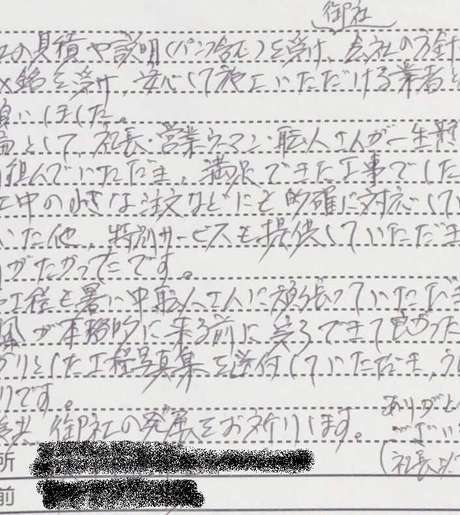 御社
社の見積や説明(パンフ含む)を受け、会社の方針
感銘を受け、安心して施工いただける業者と
願いしました。
論として、社長・営業マン・職人さんが一生懸
組んでいただき、満足できた工事でした
工中の小さな注文などにも的確に対応してい
いた他、特別サービスも提供していただき
りがたかったです。
工程を暑い中職人さんに頑張っていただき
風が本格的に来る前に完了できて良かった
かりとした工程写真集を送付していただき、う
りです。
御社の発展をお祈りします。
ありがとう
ござい
(社長以下
所
前